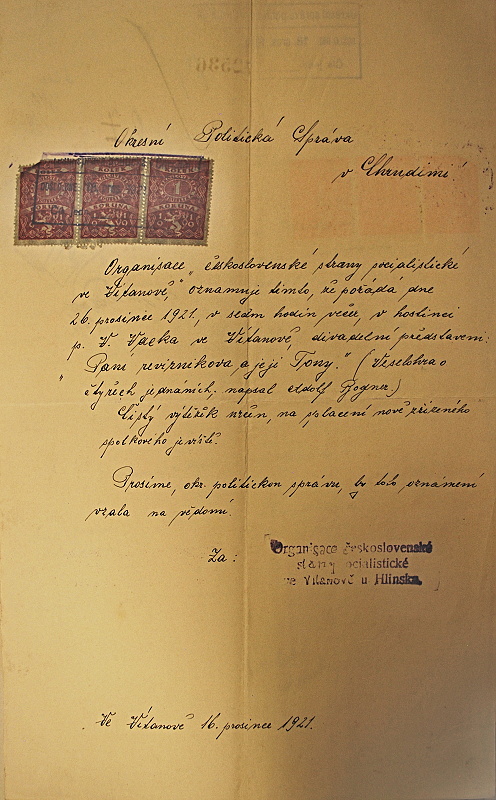 Okresní Politická Správa
v Chrudimi
KOLEK KOLEK KOLEK
1
KORUNA KORUNA KORUNA
Organisace „československé strany socialistické
ve Vítanově," oznamuje tímto, že pořádá dne
26. prosince 1921, v sedm hodin večer, v hostinci
p. V. Vacka ve Vítanově, divadelní představení:
„Paní revírníkova a její Tony." (Veselohra o
čtyřech jednáních, napsal Adolf Bogner.)
Čistý výtěžek určen, na splacení nově zřízeného
spolkového jeviště.
Prosíme, okr. politickou správu, by toto oznámení
vzala na vědomí.
Za:
Organisace československé
strany socialistické
ve Vítanově u Hlinska.
Ve Vítanově 16. prosince 1921.